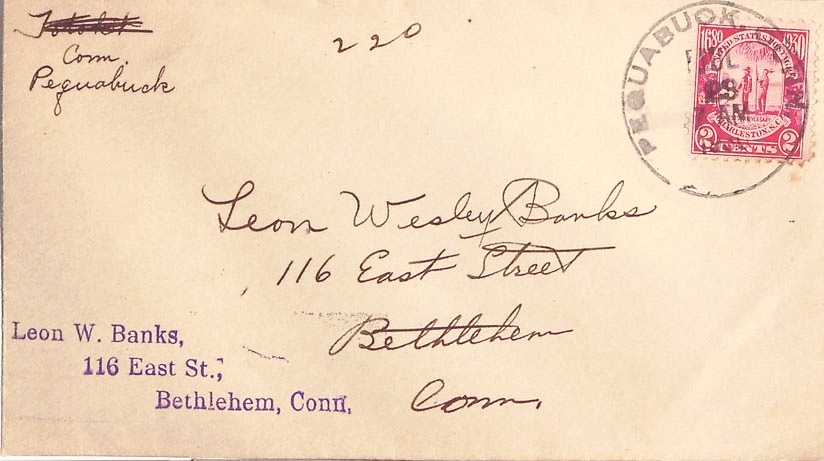 Totoket
Conn.
Pequabuck
220
PEQUABUCK, CONN
JUL
28
7 AM
1680 1930
UNITED STATES POSTAGE
ANNIVERSARY
CHARLESTON, S.C.
2 CENTS 2
Leon Wesley Banks
116 East Street
Bethlehem
Conn.
Leon W. Banks,
116 East St.,
Bethlehem, Conn.